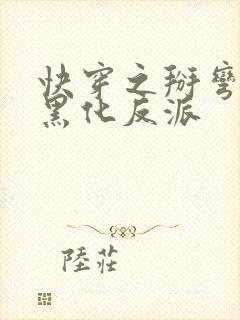 快穿之掰彎
黑化反派
陸莊